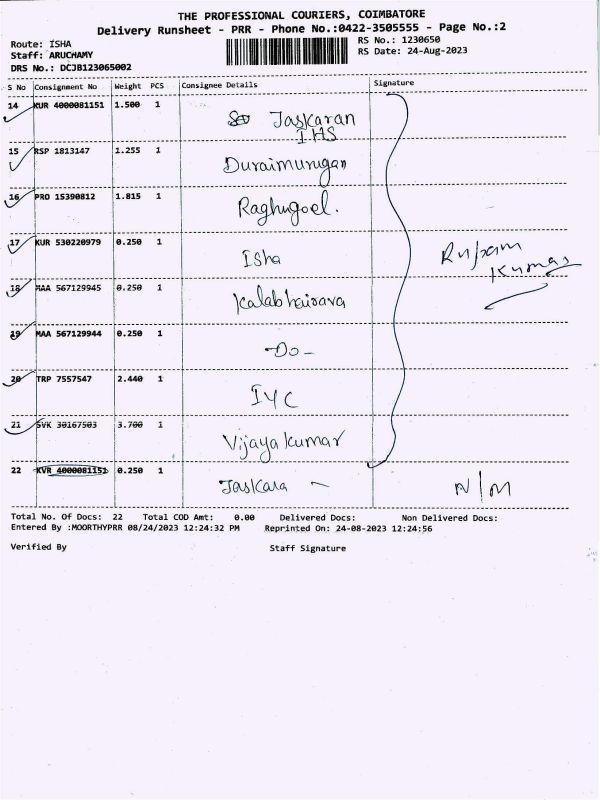 THE PROFESSIONAL COURIERS, COIMBATORE
Delivery Runsheet - PRR - Phone No.:0422-3505555 - Page No.:2
Route: ISHA
RS No.: 1230650
Staff: ARUCHAMY
RS Date: 24-Aug-2023
DRS No.: DCJB123065002
S No Consignment No Weight PCS Consignee Details Signature
14 KUR 4000081151 1.500 1 Jaskaran
IHS
15 RSP 1813147 1.255 1 Duraimurugan
16 PRO 15390812 1.815 1 Raghugoel.
17 KUR 530220979 0.250 1 Isha
Rupam
Kumar
18 MAA 567129945 0.250 1 Kalabhairava
19 MAA 567129944 0.250 1 -Do-
20 TRP 7557547 2.440 1 IYC
21 SVK 30167503 3.700 1 Vijayakumar
22 KVR 4000081151 0.250 1 Jaskara N/M
Total No. Of Docs: 22 Total COD Amt: 0.00 Delivered Docs: Non Delivered Docs:
Entered By :MOORTHYPRR 08/24/2023 12:24:32 PM Reprinted On: 24-08-2023 12:24:56
Verified By Staff Signature